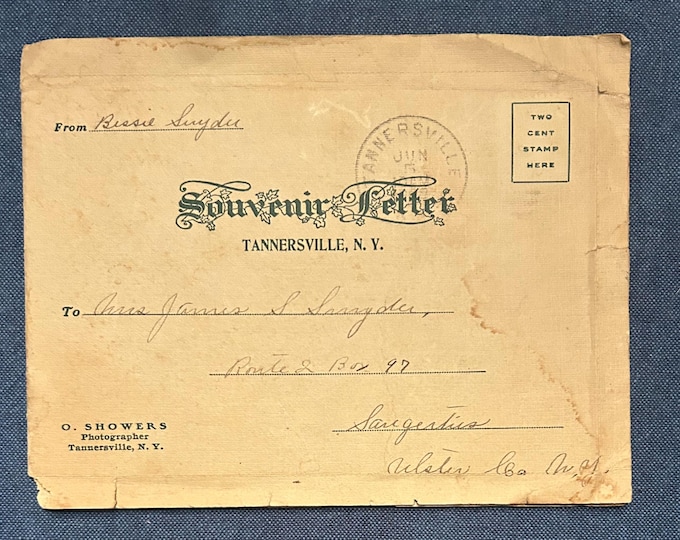 From Bessie Snyder
TANNERSVILLE
JUN
5
TWO
CENT
STAMP
HERE
Souvenir Letter
TANNERSVILLE, N. Y.
To Mrs James S Snyder,
Route 2 Box 97
Saugerties
Ulster Co N.Y.
O. SHOWERS
Photographer
Tannersville, N. Y.